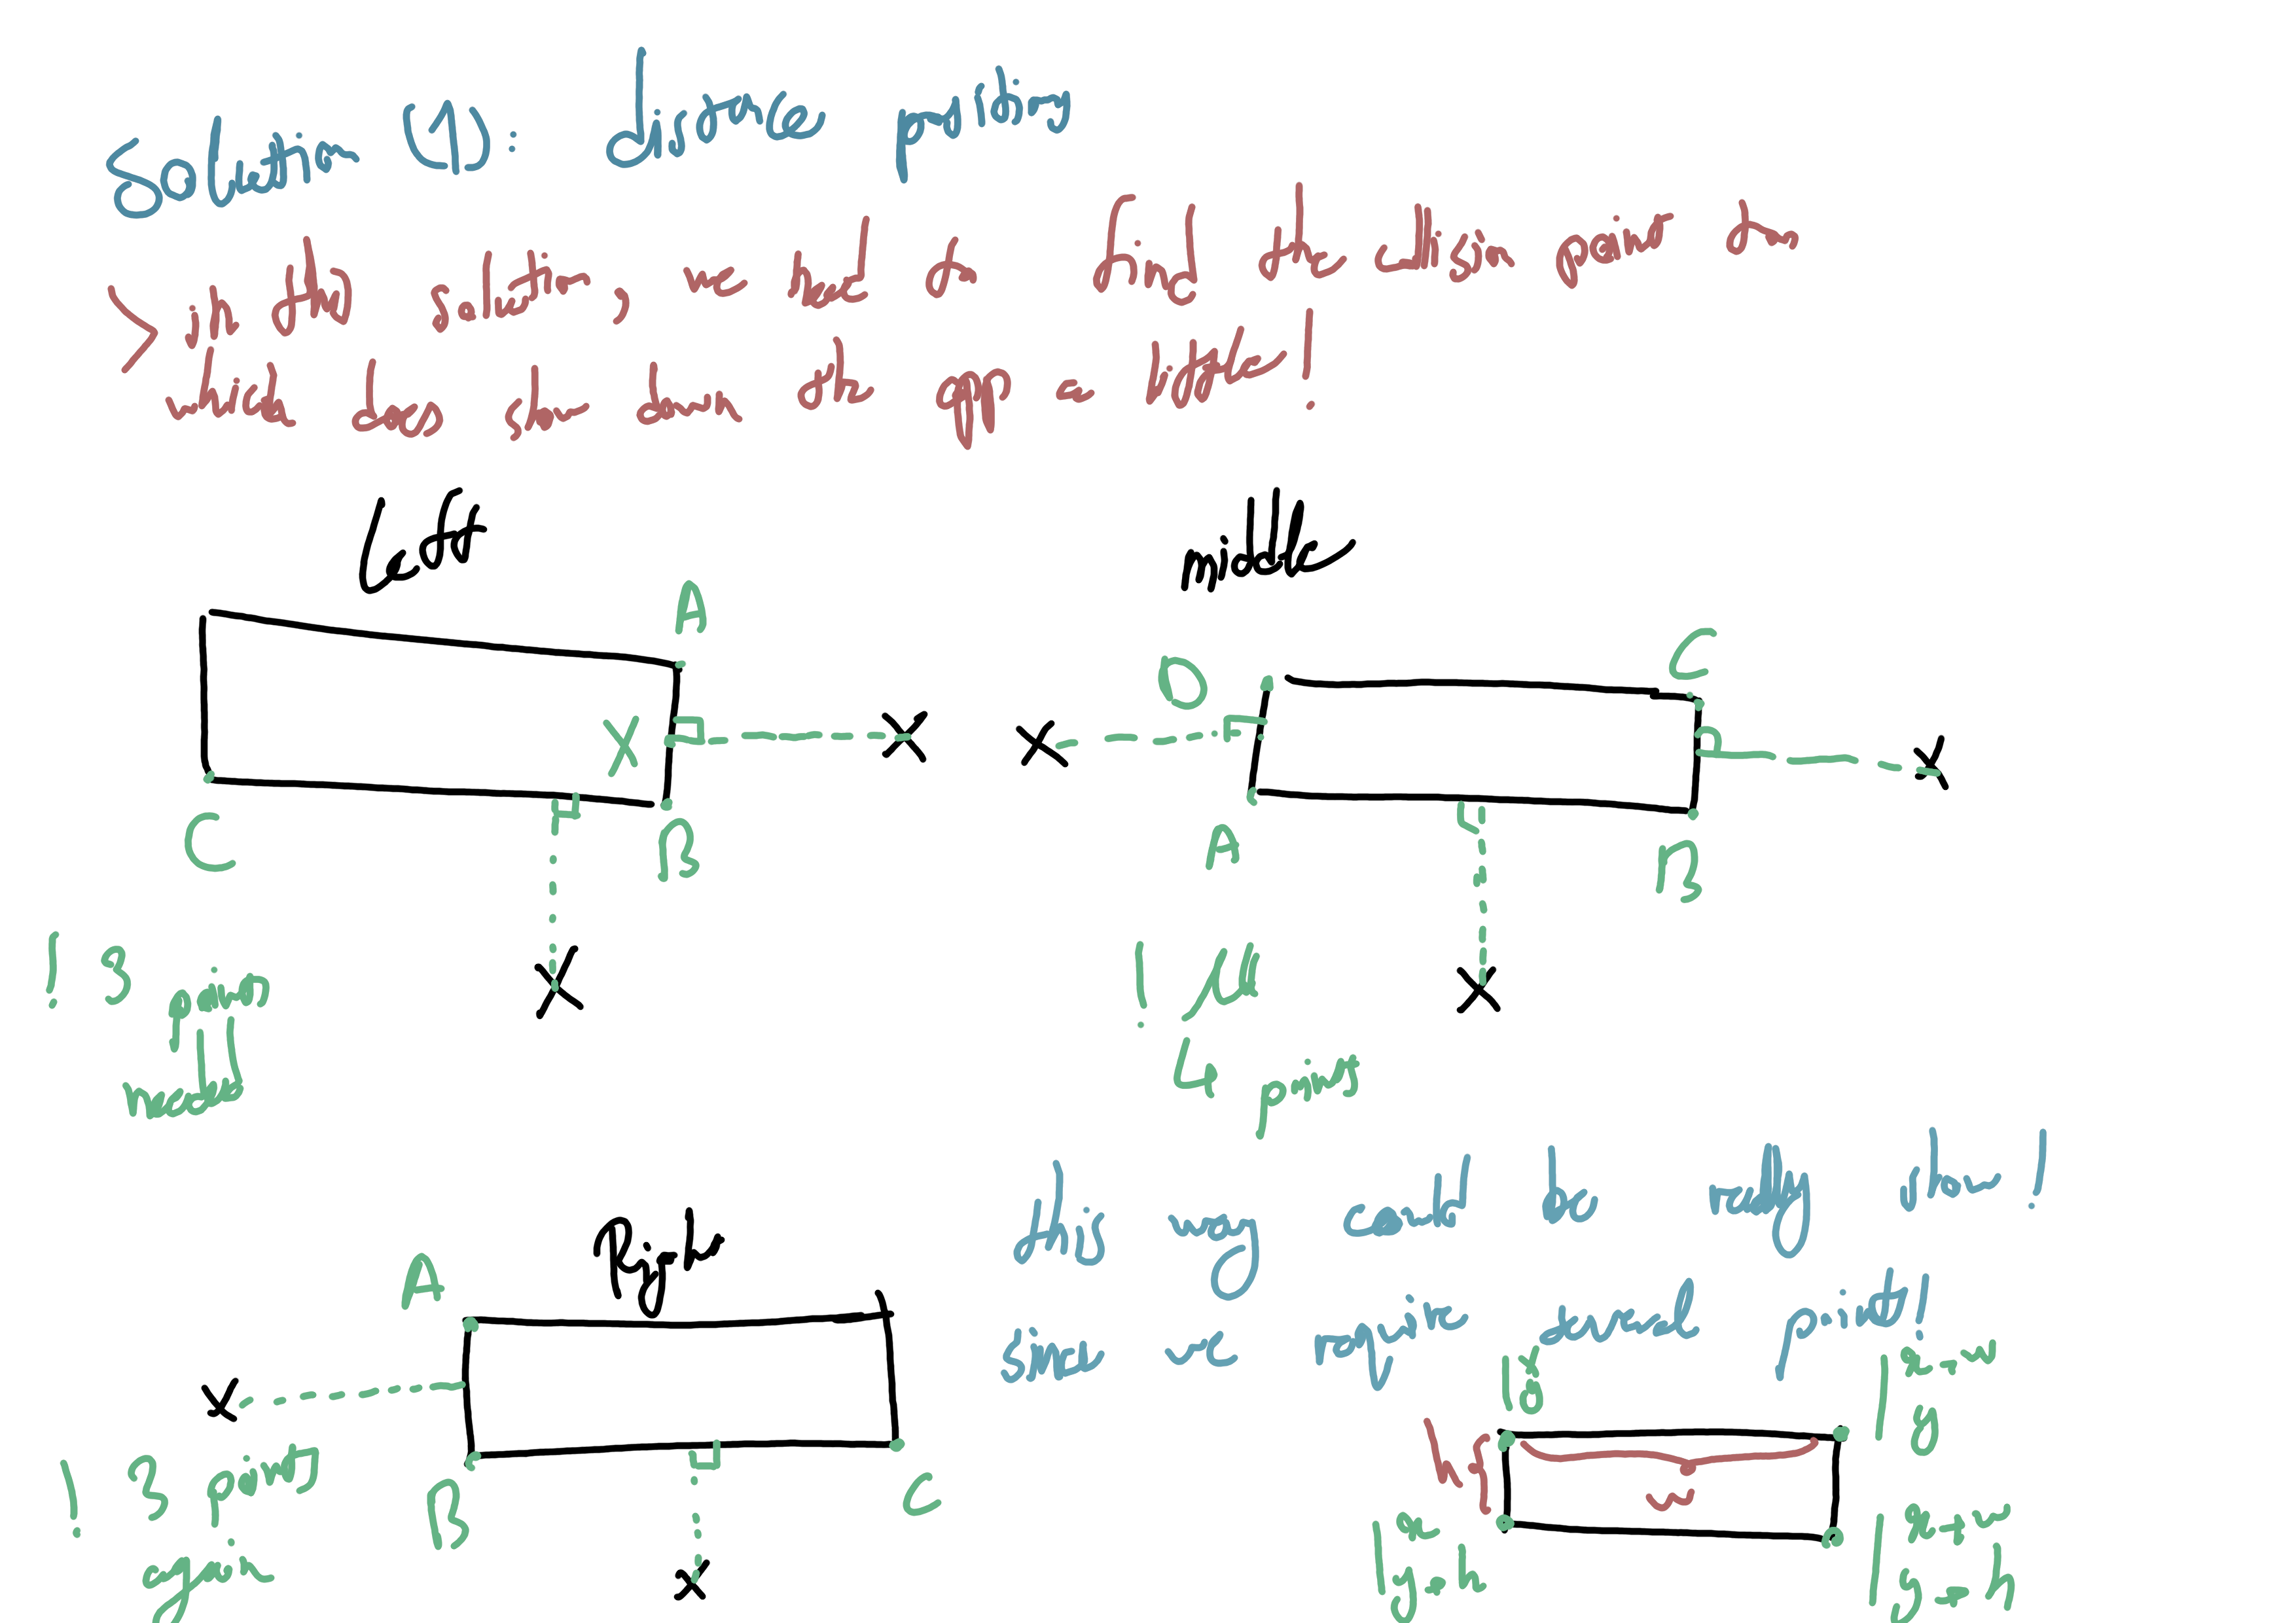 Solution (1): distance
> in this solution, we need to find the collision point too
which does slow down the app a little!
Left
middle
A
X
C
B
D
C
A
B
! 3 points
needed
!
4 points
Right
A
B
C
! 3 points
again
this way could be really slow!
since we require several points!
y
x+w
y
h
w
x
y+h
x+w
y+h